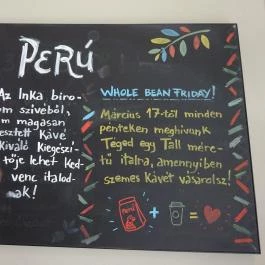 PERÚ
Az Inka biro-
om szívéből,
m magasan
esztett Kávé
Kiváló Kiegészí-
tője lehet Ked-
venc italod-
ak!
WHOLE BEAN FRIDAY!
Március 17-től minden
pénteken meghívunk
Téged egy Tall mére-
tű italra, amennyiben
szemes Kávét vásárolsz!
+ =